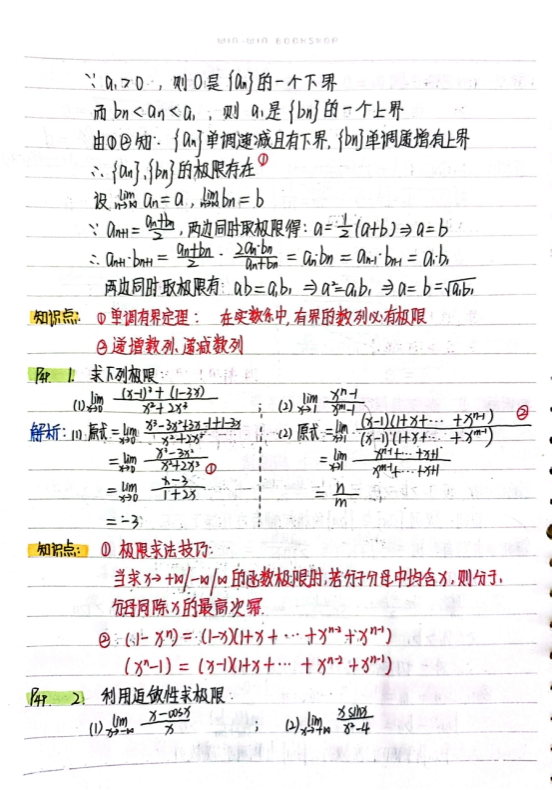 WIN-WIN BOOKSHOP
∵ a₁>0, 则0是{aₙ}的一个下界
而 bₙ<aₙ<a₁, 则 a₁是{bₙ}的一个上界
由①②知: {aₙ}单调递减且有下界, {bₙ}单调递增有上界
∴ {aₙ},{bₙ}的极限存在①
设 lim n→∞ aₙ=a, lim n→∞ bₙ=b
∵ aₙ₊₁= (aₙ+bₙ)/2, 两边同时取极限得: a=1/2(a+b) ⇒ a=b
∴ aₙ₊₁·bₙ₊₁ = (aₙ+bₙ)/2 · 2aₙ·bₙ/(aₙ+bₙ) = aₙ·bₙ = aₙ₋₁·bₙ₋₁ = a₁b₁
两边同时取极限有: ab=a₁b₁ ⇒ a²=a₁b₁ ⇒ a=b=√(a₁b₁)
知识点: ①单调有界定理: 在实数系中,有界的数列必有极限
②递增数列、递减数列
P54 1. 求下列极限
(1) lim x→0 ((x-1)³+(1-3x))/(x²+2x³) ; (2) lim x→1 (xⁿ-1)/(xᵐ-1)
解析: (1) 原式 = lim x→0 (x³-3x²+3x-1+1-3x)/(x²+2x³) (2) 原式 = lim x→1 ((x-1)(1+x+⋯+xⁿ⁻¹))/((x-1)(1+x+⋯+xᵐ⁻¹)) ②
= lim x→0 (x³-3x²)/(x²+2x³) ① = lim x→1 (xⁿ⁻¹+⋯+x+1)/(xᵐ⁻¹+⋯+x+1)
= lim x→0 (x-3)/(1+2x) = n/m
= -3
知识点: ①极限求法技巧:
当求x→+∞/-∞/∞的函数极限时,若分子分母中均含x,则分子、
分母同除x的最高次幂.
② (1-xⁿ) = (1-x)(1+x+⋯+xⁿ⁻²+xⁿ⁻¹)
(xⁿ-1) = (x-1)(1+x+⋯+xⁿ⁻²+xⁿ⁻¹)
P54 2. 利用迫敛性求极限:
(1) lim x→-∞ (x-cosx)/x ; (2) lim x→+∞ (x sinx)/(x²-4)